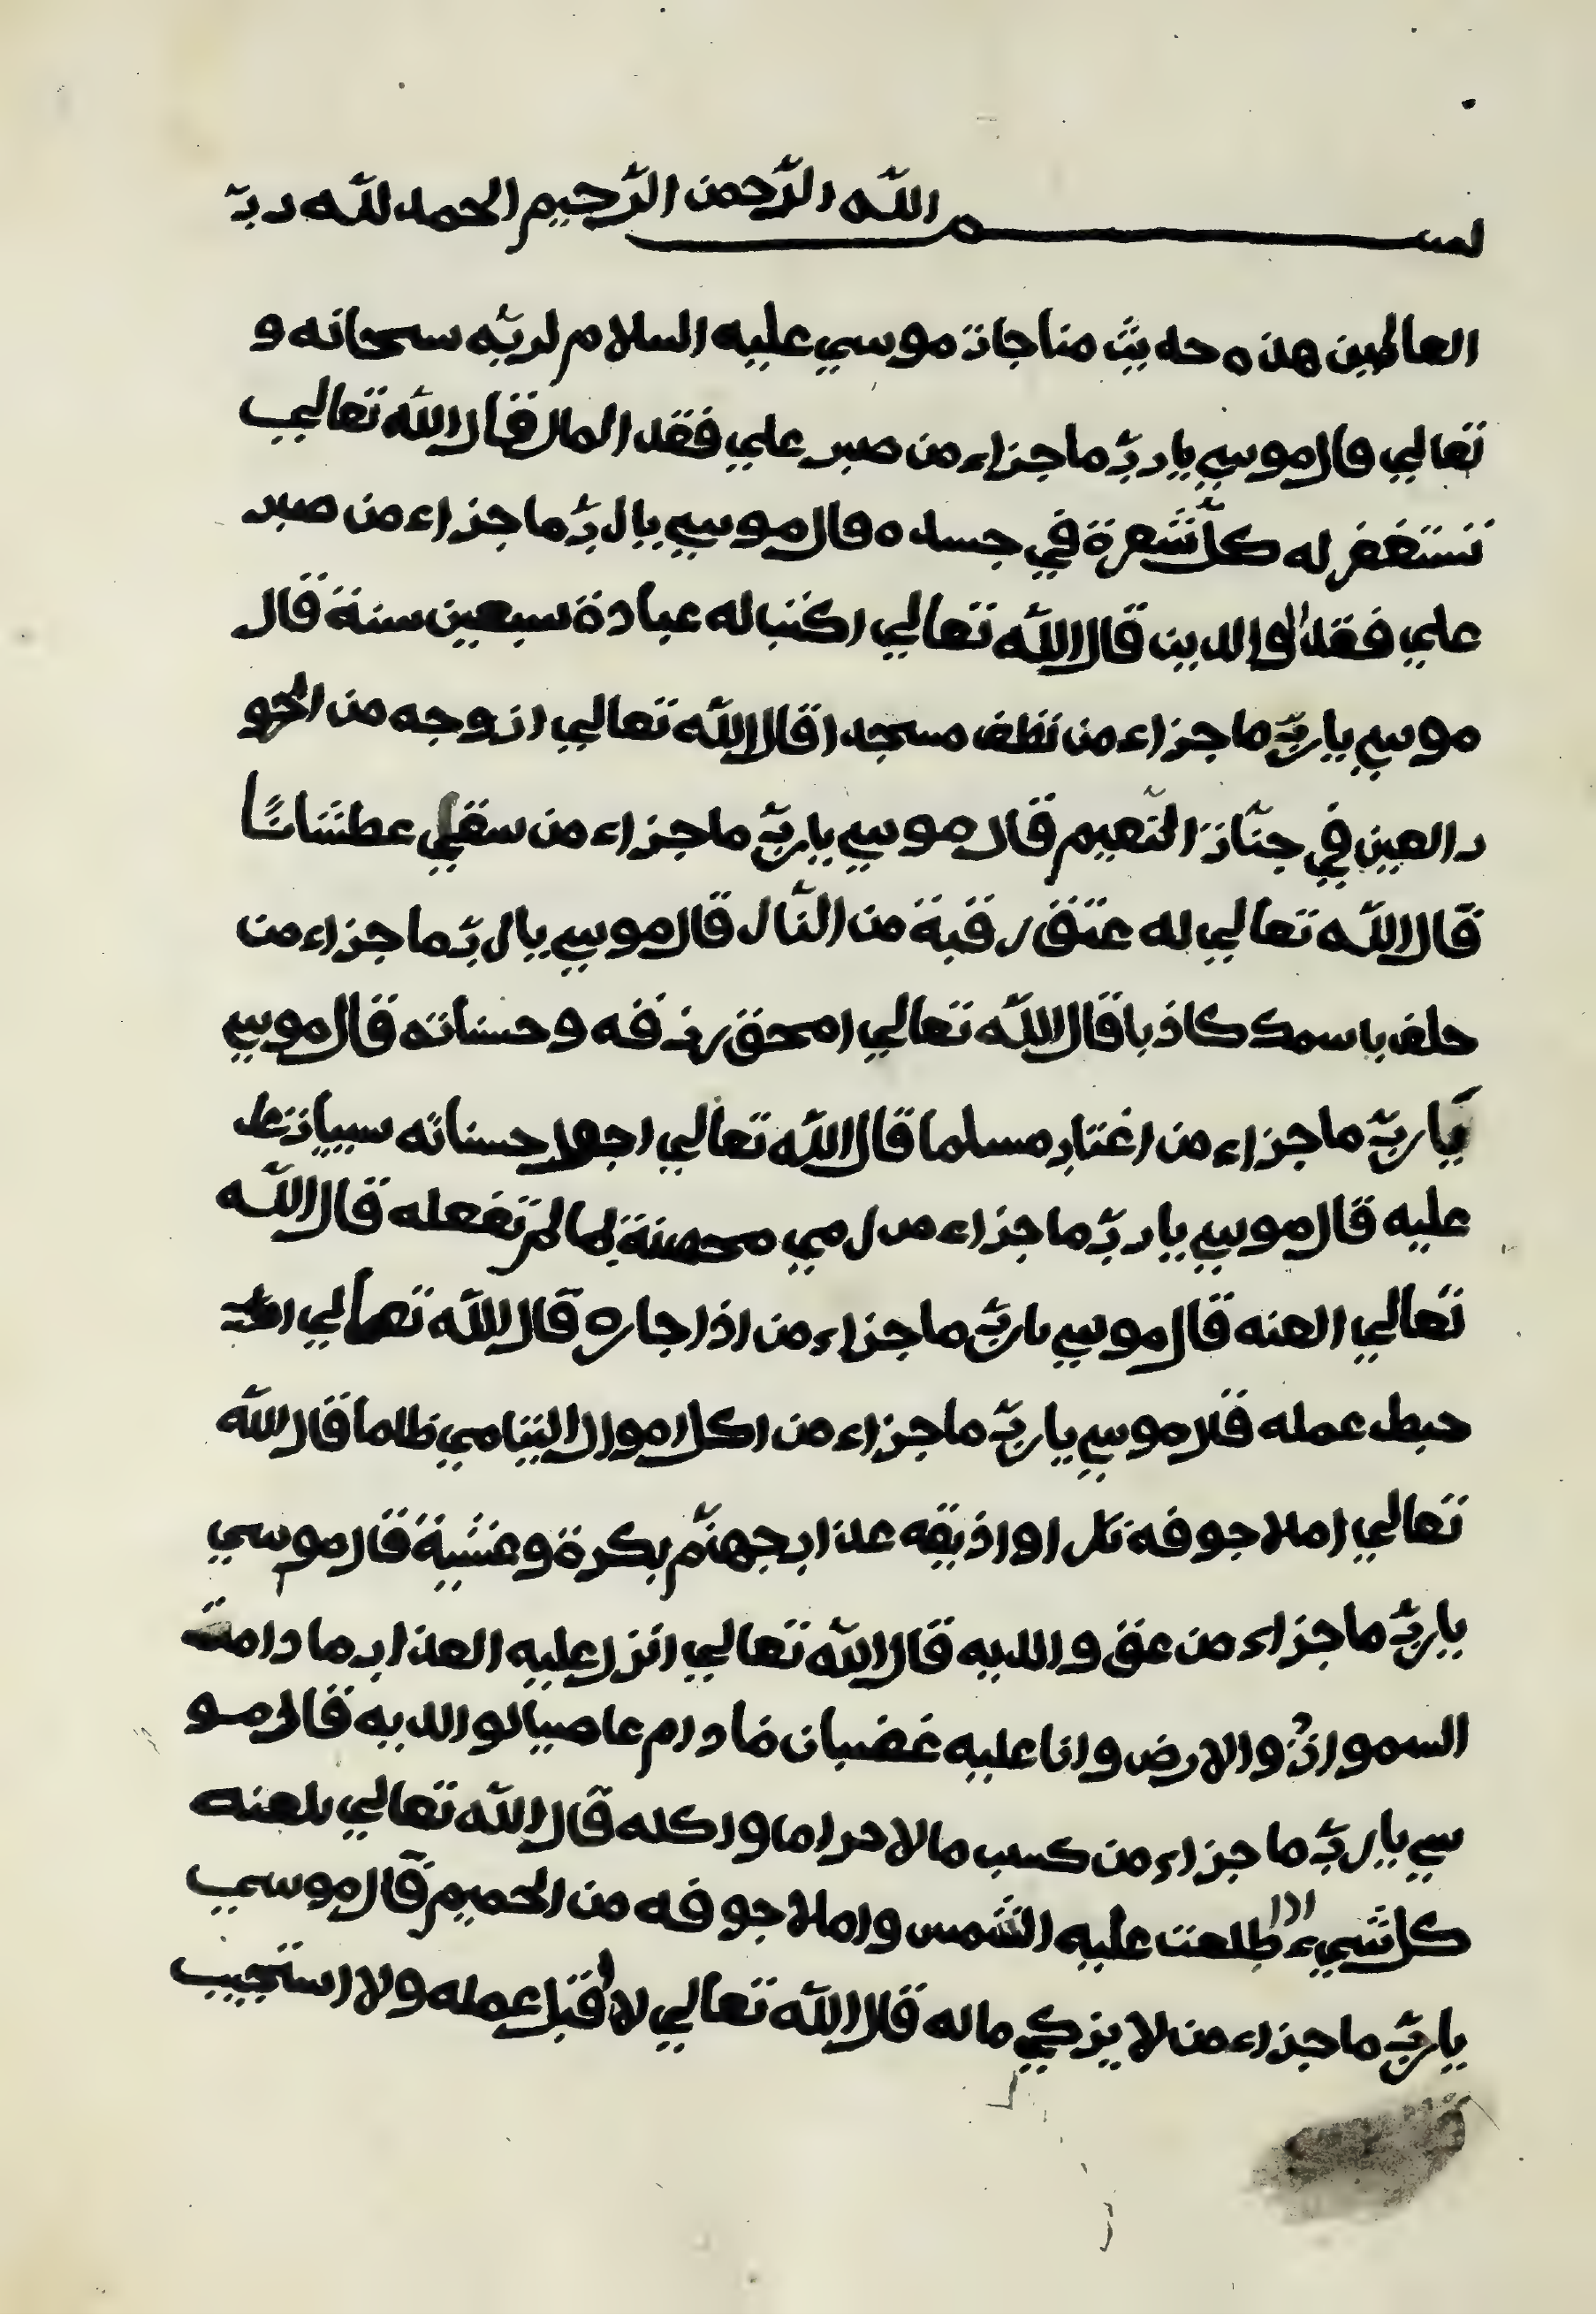 بسم الله الرّحمن الرّحيم الحمد لله ربّ
العالمين هذه حديث مناجات موسي عليه السلام لربّه سبحانه و
تعالي قال موسي يا ربّ ما جزاء من صبر علي فقد المال قال الله تعالي
تستغفر له كلّ شعرة في جسده قال موسي يا ربّ ما جزاء من صبر
علي فقد الوالدين قال الله تعالي اكتب له عبادة سبعين سنة قال
موسي يا ربّ ما جزاء من نظف مسجدا قال الله تعالي ازوجه من الحو
ر العين في جنّات النّعيم قال موسي يا ربّ ما جزاء من سقي عطشانًا
قال الله تعالي له عتق رقبة من النّار قال موسي يا ربّ ما جزاء من
حلف باسمك كاذبا قال الله تعالي امحق رزقه و حسناته قال موسي
يا ربّ ما جزاء من اغتاب مسلما قال الله تعالي اجعل حسناته سييات
عليه قال موسي يا ربّ ما جزاء من رمي محصنة بما لم تفعله قال الله
تعالي العنه قال موسي يا ربّ ما جزاء من اذا جاره قال الله تعالي
حبط عمله قال موسي يا ربّ ما جزاء من اكل اموال اليتامي ظلما قال الله
تعالي املا جوفه نارا واذيقه عذاب جهنّم بكرة وعشية قال موسي
يا ربّ ما جزاء من عق والديه قال الله تعالي انزل عليه العذاب ما دامت
السموات والارض وانا عليه غضبان ما دام عاصيا لوالديه قال مو
سي يا ربّ ما جزاء من كسب مالا حراما واكله قال الله تعالي يلعنه
كل شيء اذا طلعت عليه الشّمس واملا جوفه من الحميم قال موسي
يا ربّ ما جزاء من لا يزكي ماله قال الله تعالي لا اقبل عمله ولا استجيب